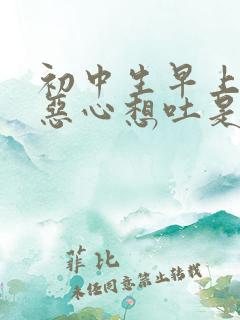 初中生早上
恶心想吐是
菲比
未经同意禁止转载